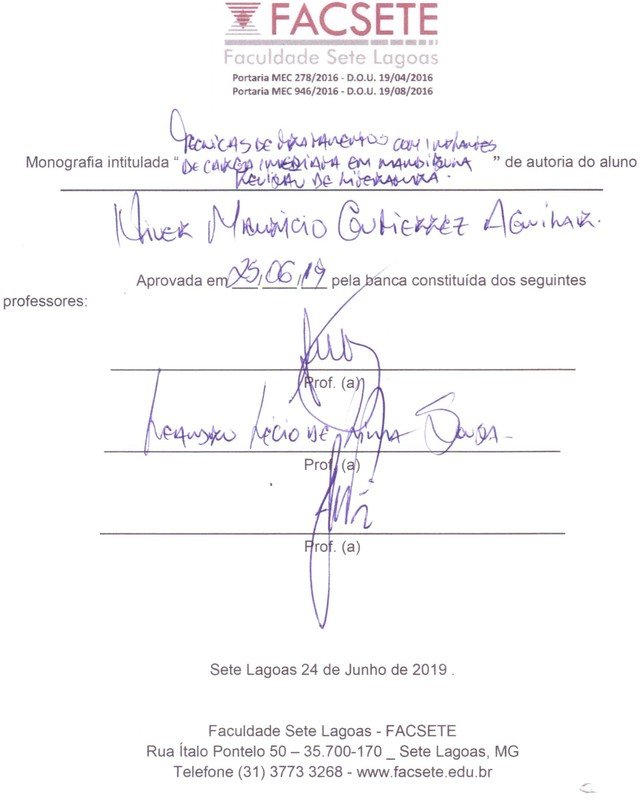 FACSETE
Faculdade Sete Lagoas
Portaria MEC 278/2016 - D.O.U. 19/04/2016
Portaria MEC 946/2016 - D.O.U. 19/08/2016
TECNICAS DE TRATAMENTOS COM IMPLANTES
Monografia intitulada “ DE CARGA IMEDIATA EM MANDIBULA ” de autoria do aluno
REVISAO DE LITERATURA.
MAURICIO GUTIERREZ AGUILAR.
Aprovada em 25,06,19 pela banca constituída dos seguintes
professores:
Prof. (a)
LEANDRO LÉCIO DE LIMA SOUSA
Prof. (a)
Prof. (a)
Sete Lagoas 24 de Junho de 2019 .
Faculdade Sete Lagoas - FACSETE
Rua Ítalo Pontelo 50 – 35.700-170 _ Sete Lagoas, MG
Telefone (31) 3773 3268 - www.facsete.edu.br